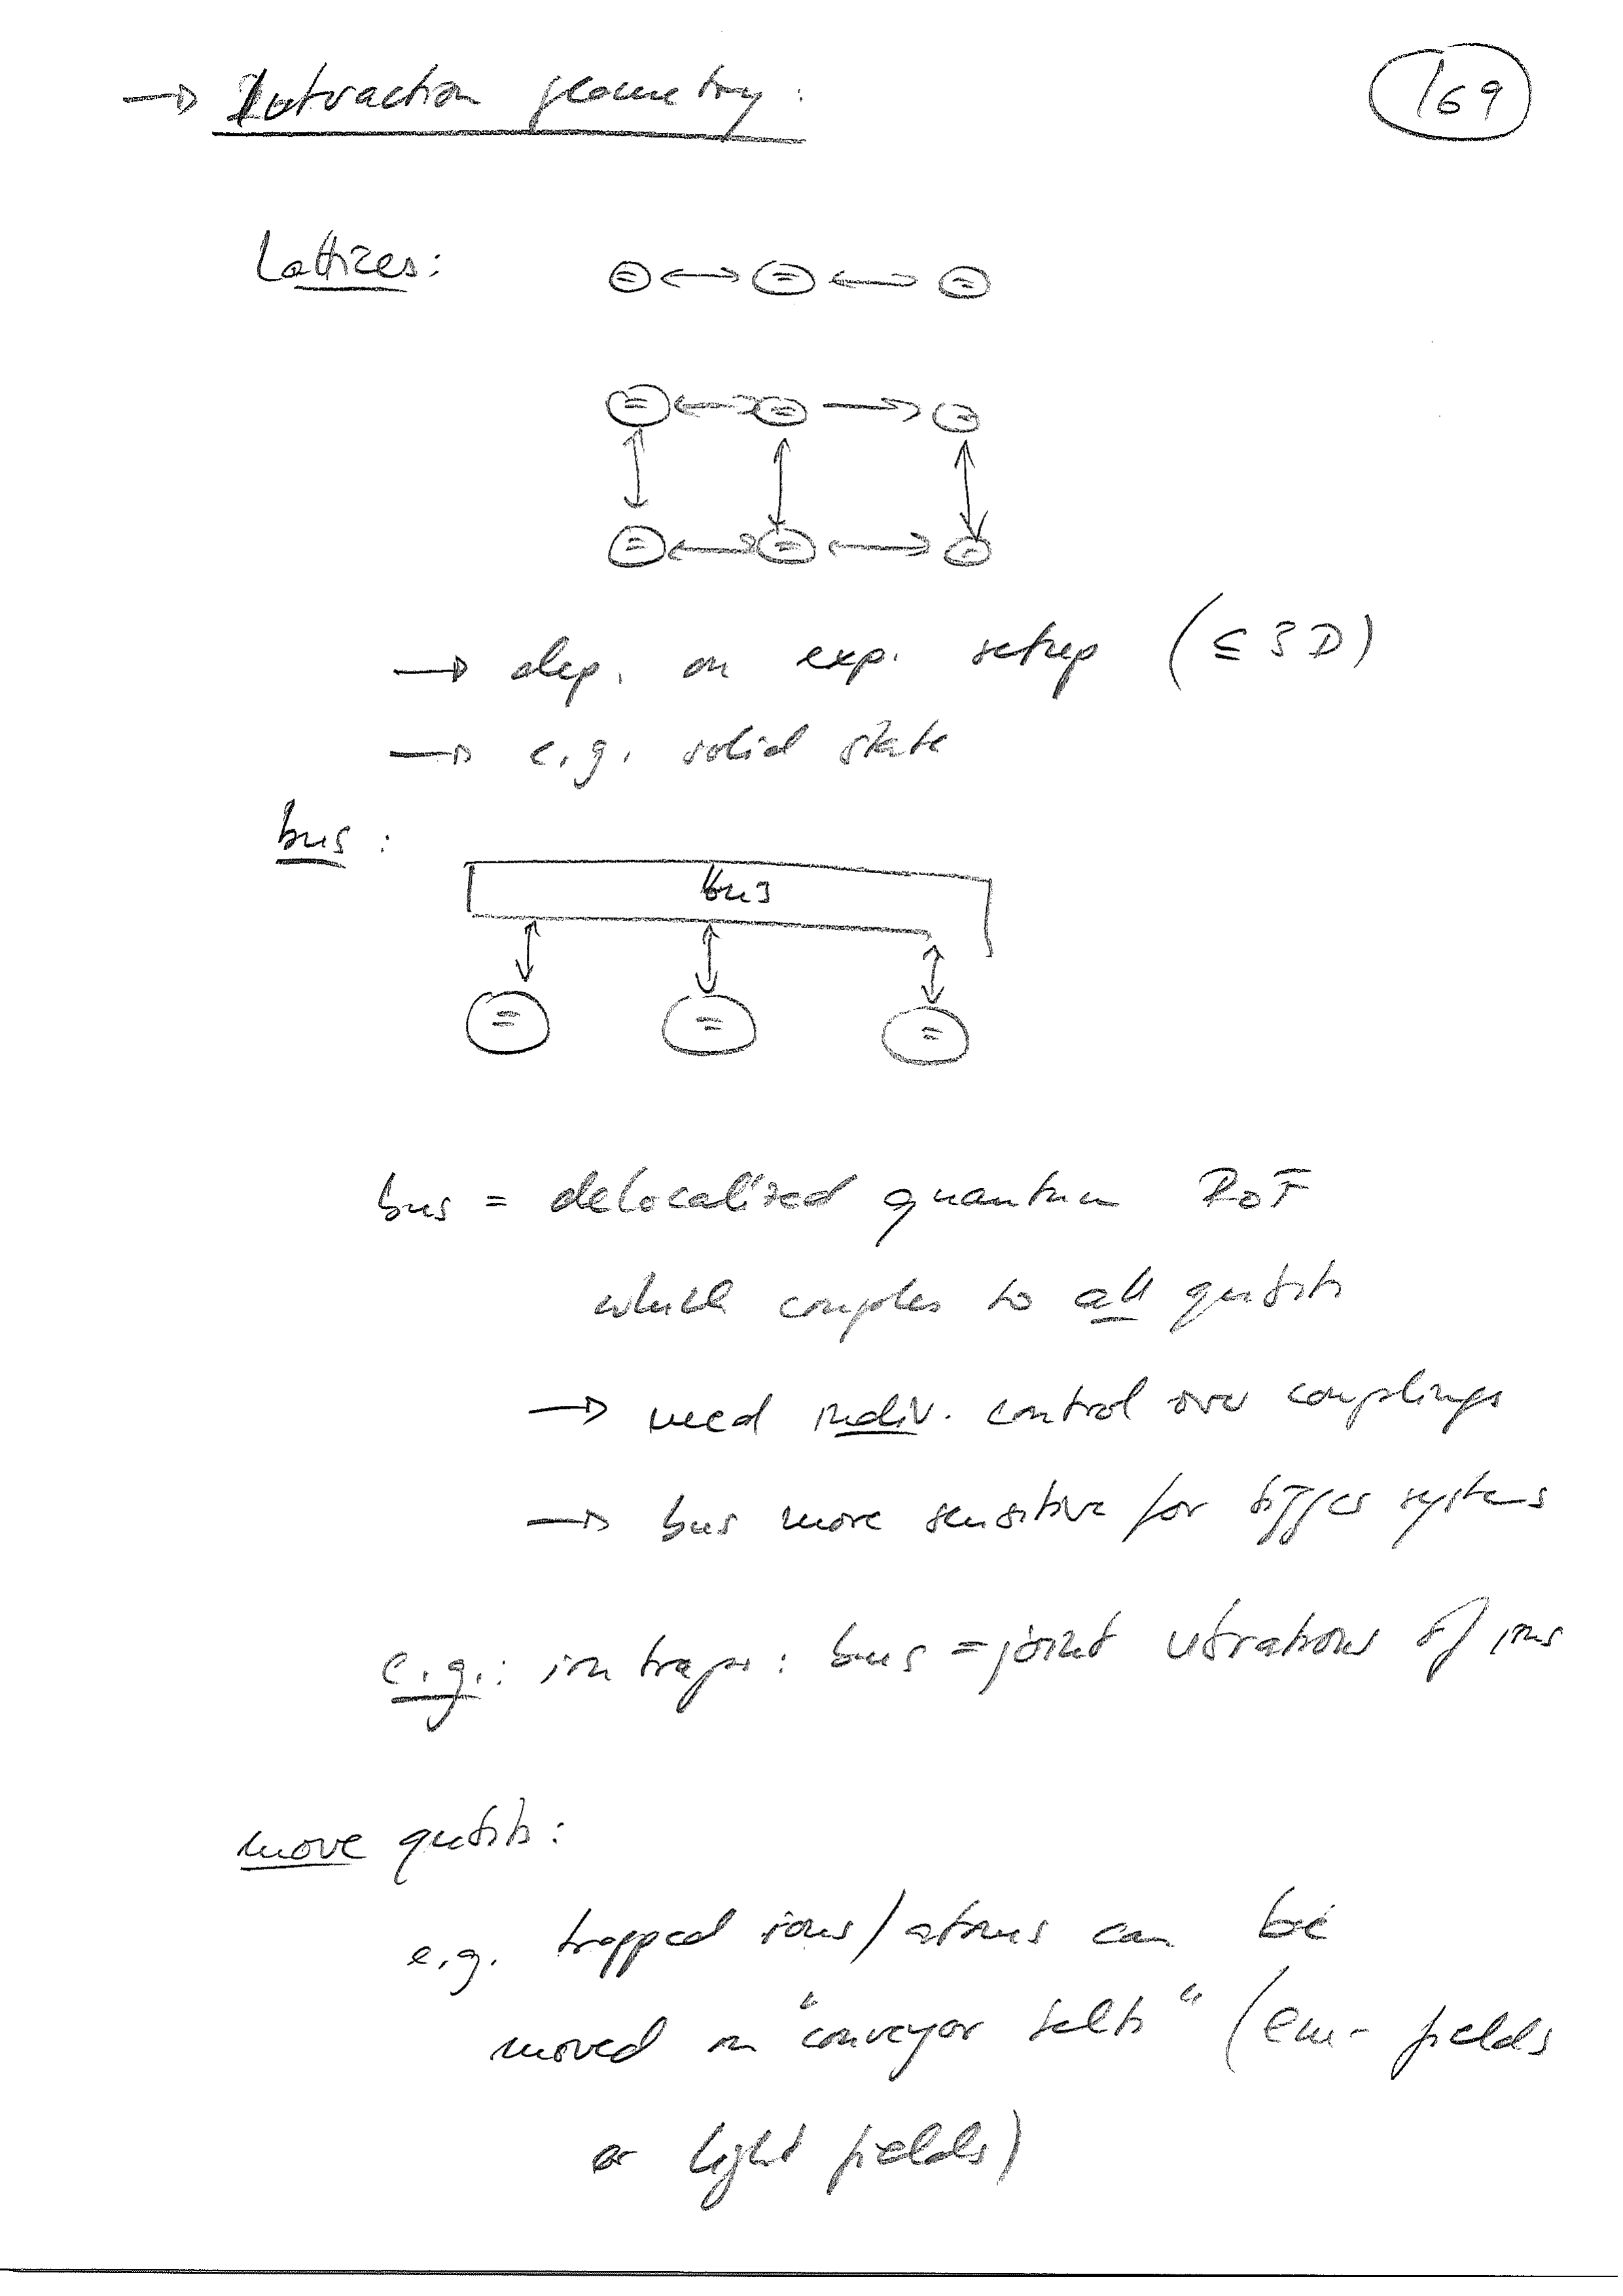 → Interaction geometry:
169
Lattices:
→ dep. on exp. setup (≤ 3D)
→ e.g. solid state
bus:
bus
bus = delocalized quantum DoF
which couples to all qubits
→ need indiv. control over couplings
→ bus more sensitive for bigger systems
e.g.: ion traps: bus = joint vibrations of ions
move qubits:
e.g. trapped ions/atoms can be
moved on "conveyor belts" (em-fields
or light fields)